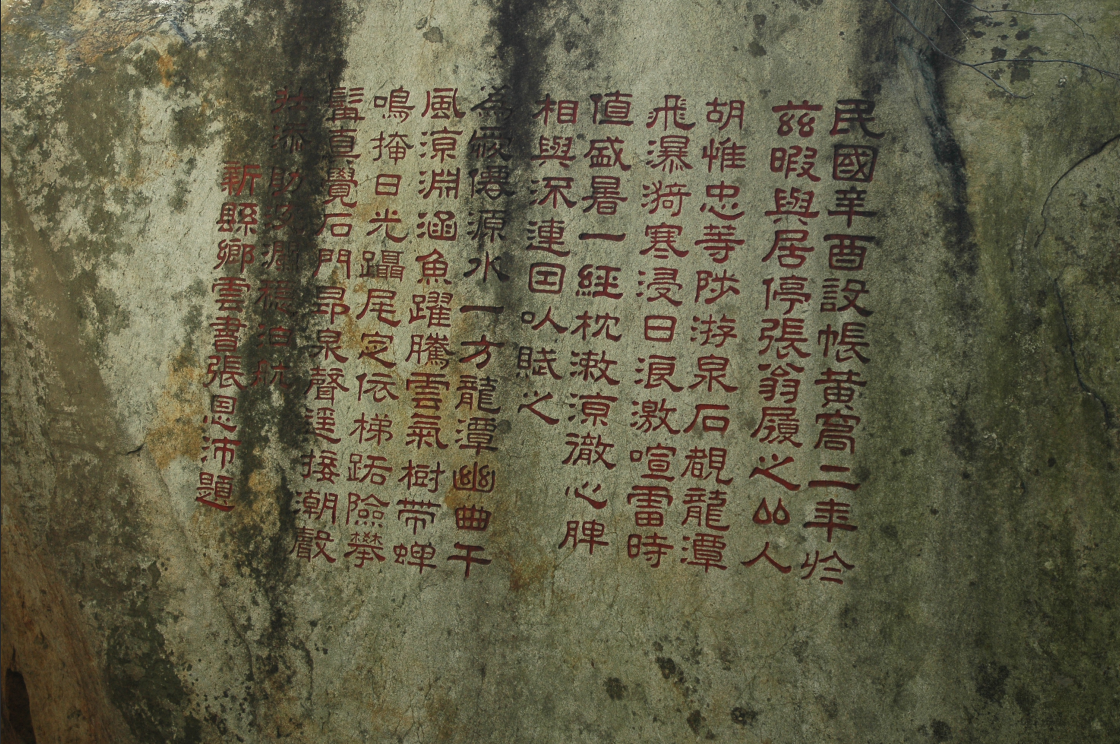 民國辛酉設帳黃窩二年於
茲暇與居停張翁履之山人
胡惟忠等陟游泉石覩龍潭
飛瀑漪寒浸日浪激喧雷時
值盛暑一經枕漱涼徹心脾
相與深連因以賦之
為愛僊源水一方龍潭幽曲千
風涼淵涵魚躍騰雲氣樹帶蟬
鳴掩日光躡尾念依梯跖險攀
髯直覺石門昂泉聲遥接潮聲
新縣鄉雲書張恩沛題